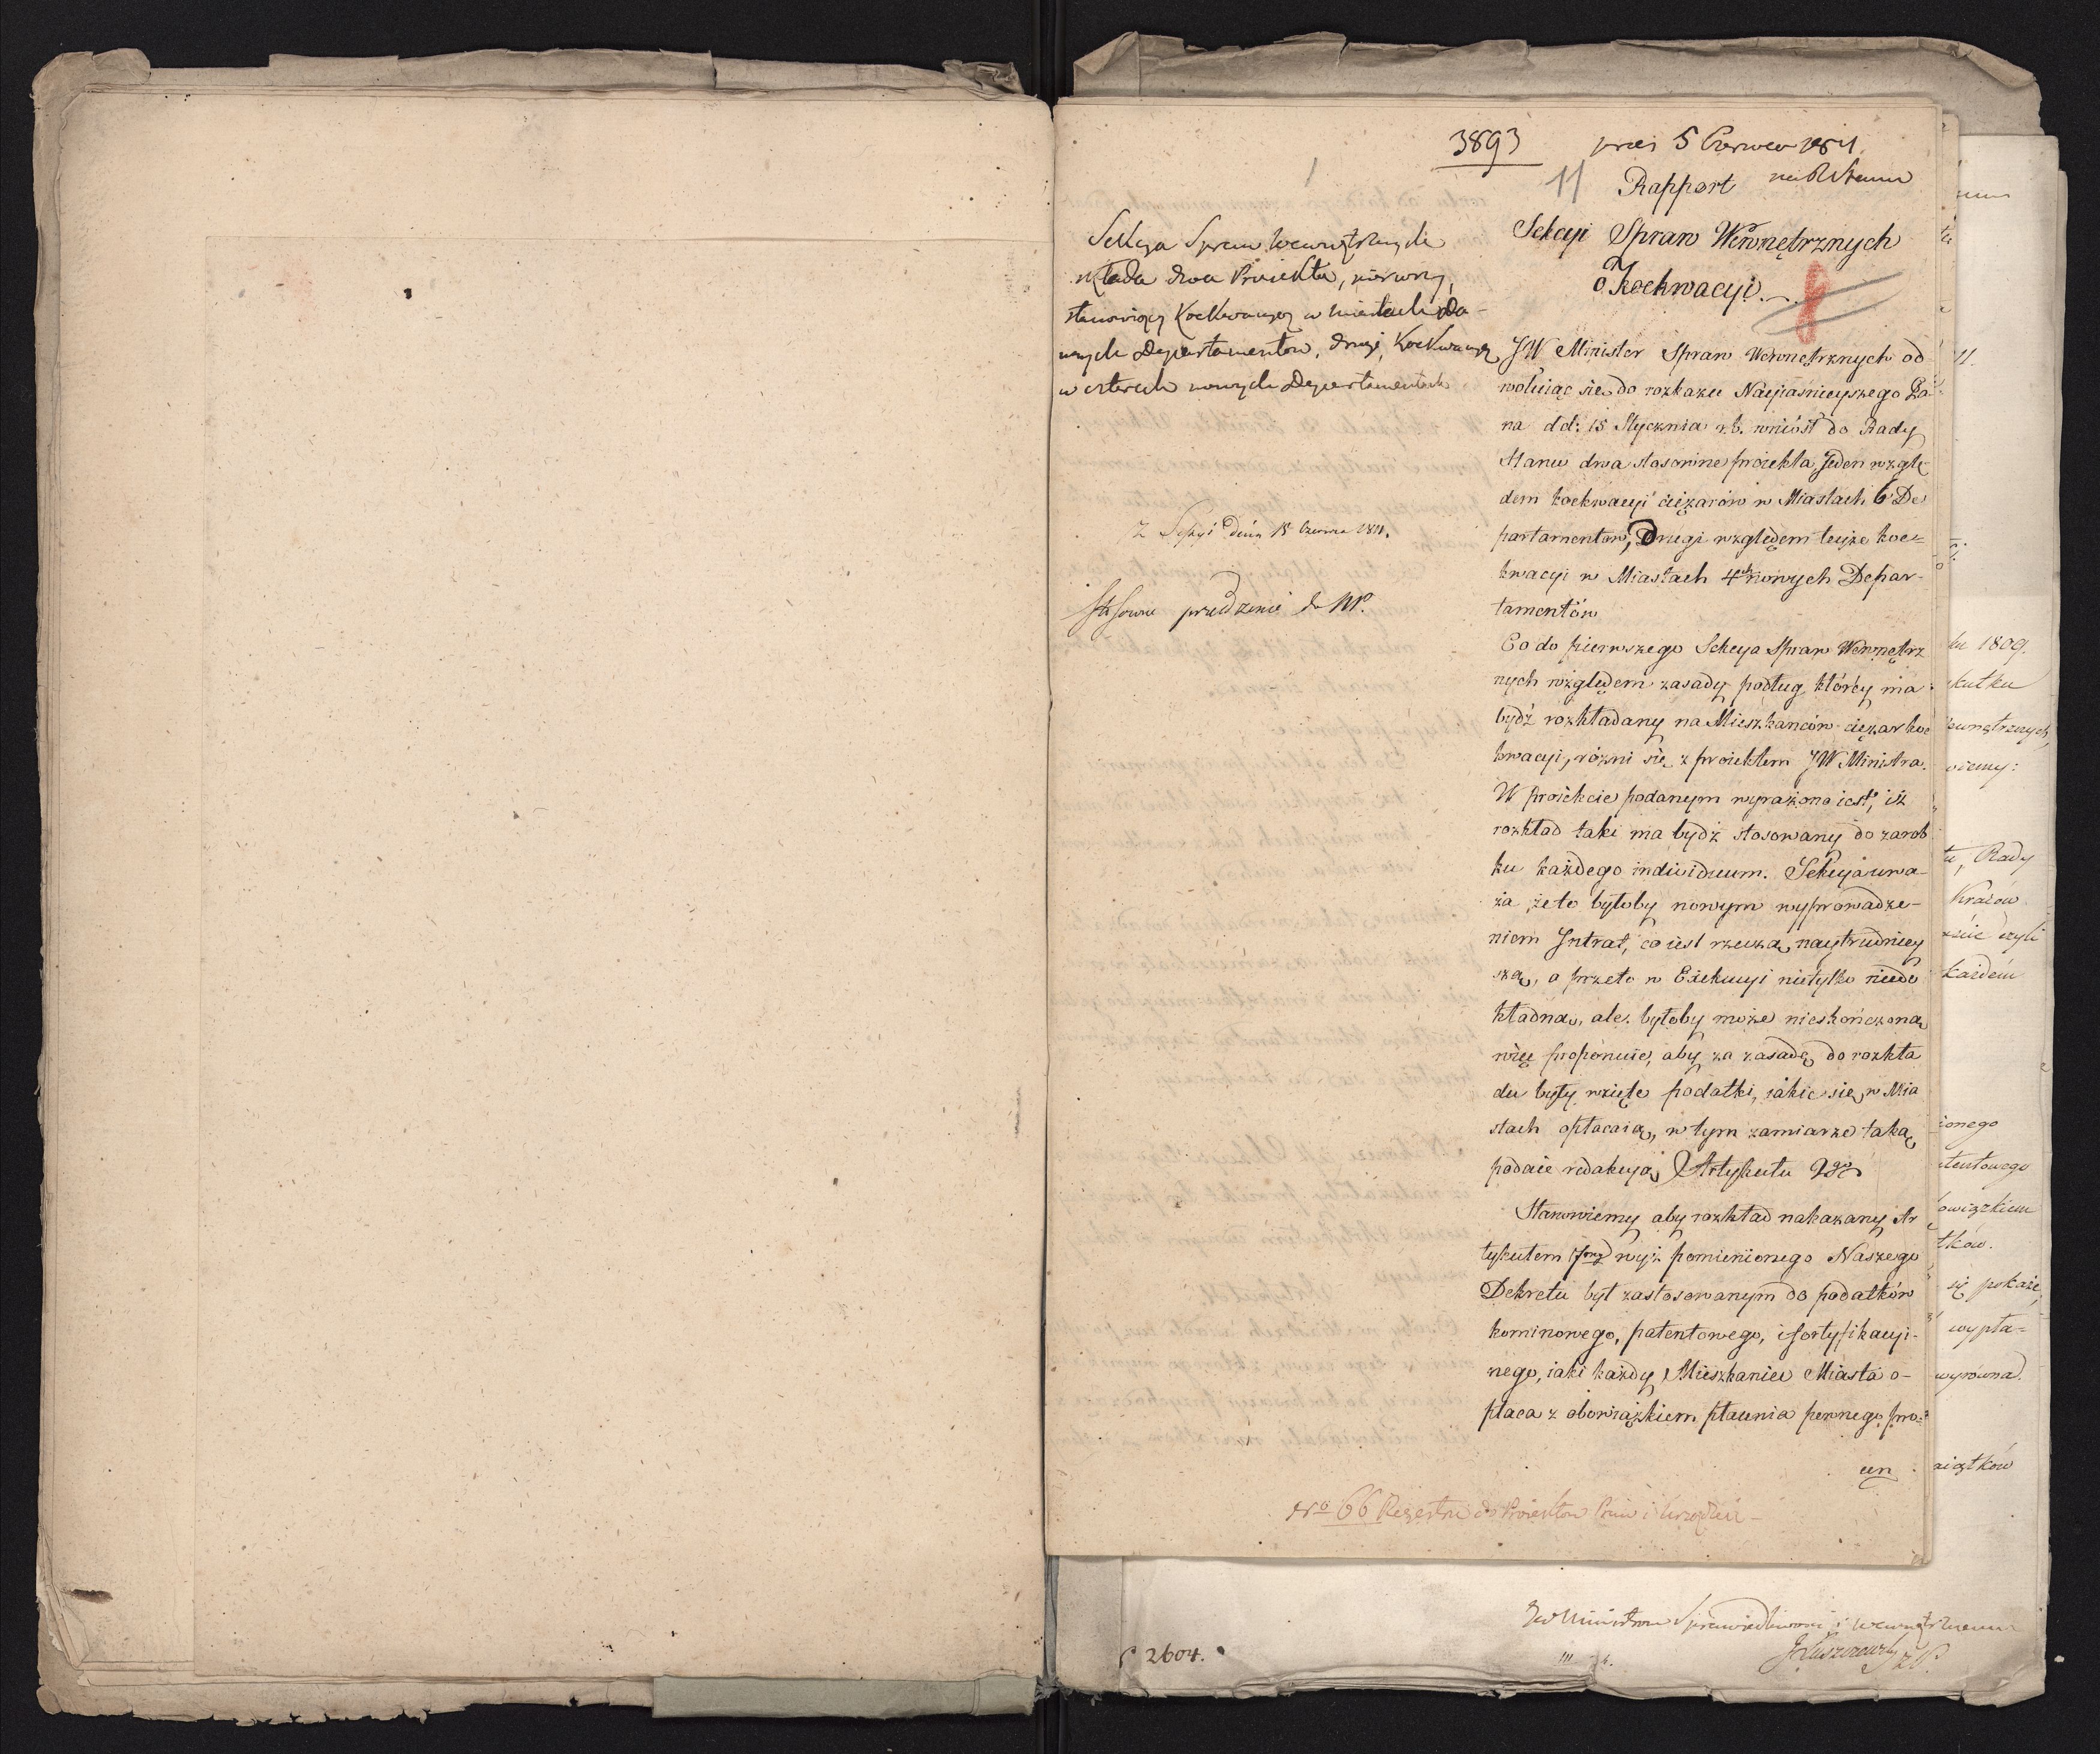 3893
prez 5 Czerwca 1811.
11 Rapport na R Stanu
Sekcyi Spraw Wewnętrznych
o Koekwacyi.
8
Sekcya Spraw Wewnętrznych
składa dwa Proiekta, pierwszy,
stanowiący Koekwacyą w miastach da-
wnych Departamentow, drugi, Koekwacyą
w czterech nowych Departamentach
Z Sessyi Dnia 15 Czerwca 1811.
Stosowne
JW Minister Spraw Wewnętrznych od
wołuiąc się do rozkazu Nayiaśnieyszego Pa
na dd: 15 Stycznia r.b. wniósł do Rady
Stanu dwa stosowne proiekta, Jeden wzglę
dem koekwacyi ciężarów w Miastach 6 De
partamentow, Drugi względem teyże koe=
kwacyi w Miastach 4ch nowych Depar-
tamentów
Co do pierwszego Sekcya Spraw Wewnętrz
nych względem zasady podług któréy ma
bydź rozkładany na Mieszkanców ciężar koe
kwacyi, rózni się z proiektem JW Ministra.
W proiekcie podanym wyrażono iest, iż
rozkład taki ma bydź stosowany do zarob
ku każdego individuum. Sekcya uwa-
ża, że to byłoby nowym wyprowadze-
niem Intrat, co iest rzeczą naytrudniey
szą, a przeto w Exekucyi nietylko niedo
kładną, ale byłoby może nieskończoną
więc proponuie, aby za zasadę do rozkła
du były wzięte podatki, iakie się w Mia
stach opłacaią, w tym zamiarze taką
podaie redakcyą Artykułu 2go
Stanowiemy aby rozkład nakazany Ar
tykułem 7mą wyż pomienionego Naszego
Dekretu był zastosowanym do podatków
kominowego, patentowego, i fortyfikacyi-
nego, iaki każdy Mieszkaniec Miasta o-
płaca z obowiązkiem płacenia pewnego pro=
cen
Nro 66 Regestru do Proiektow Praw i Urządzeń -
11.
ku 1809.
skutku
ewnętrznych,
owiemy:
tu, Rady
Kraiów
czyli
każdem
ionego
atentowego
bowiązkiem
tków.
się pokaże,
wypła=
wyrówna.
aiątków
2604.